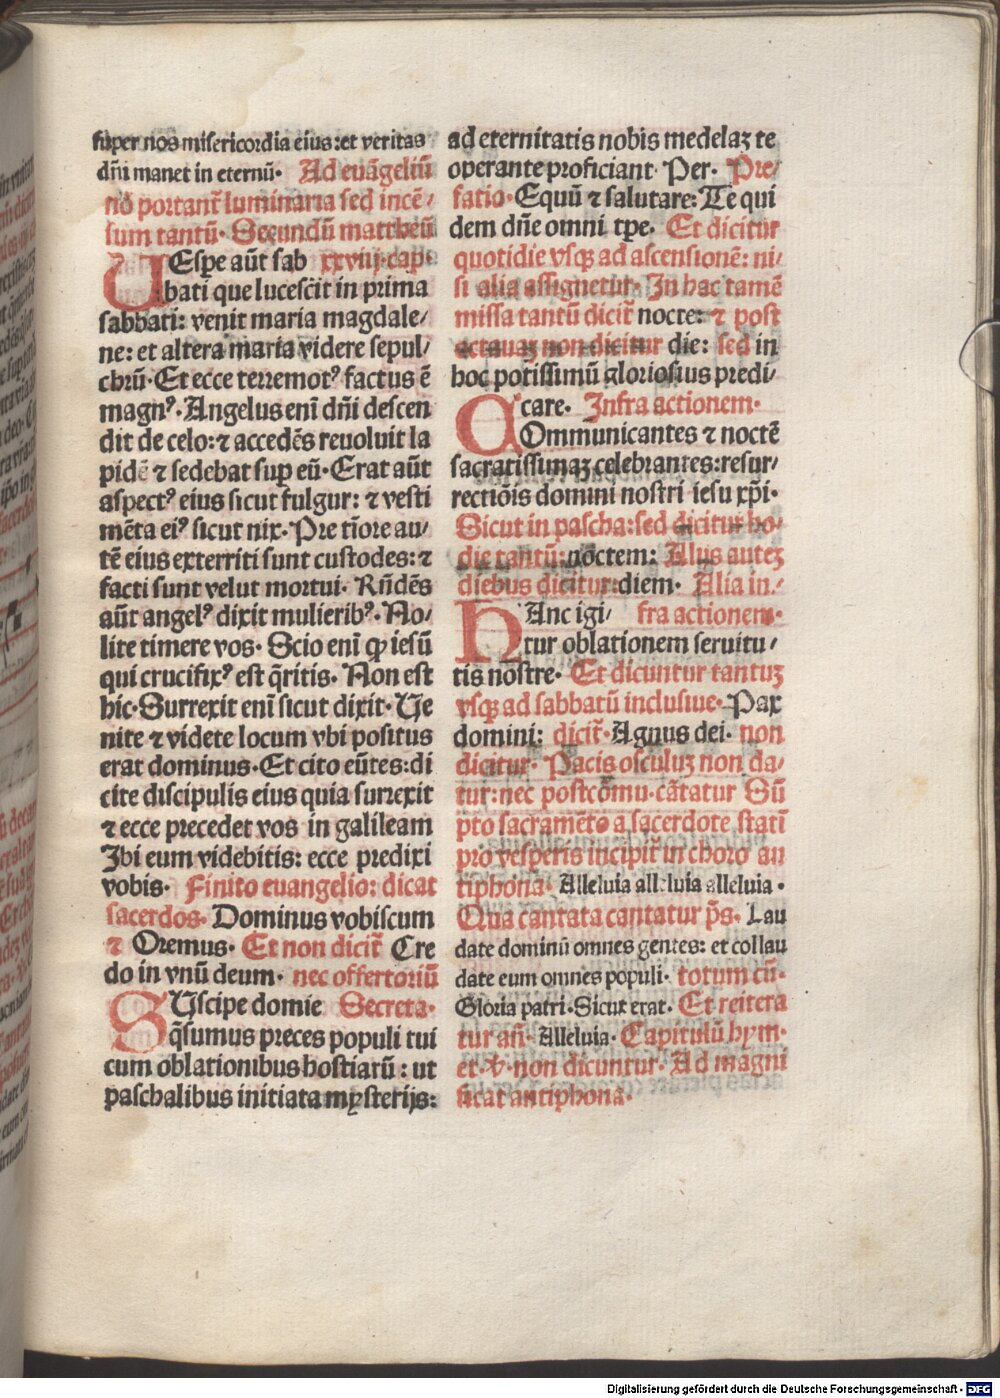 super nos misericordia eius: et veritas
dñi manet in eternū. Ad euāgeliū
nō portant̄ luminaria sed incē/
sum tantū. Secundū mattheū
UEspe aūt sab xxviij. cap.
bati que lucescit in prima
sabbati: venit maria magdale/
ne: et altera maria videre sepul/
chrū. Et ecce terremotꝰ factus ē
magnꝰ. Angelus eni dñi descen
dit de celo: ⁊ accedēs reuoluit la
pidē ⁊ sedebat suꝑ eū. Erat aūt
aspectꝰ eius sicut fulgur: ⁊ vesti
mēta eiꝰ sicut nix. Pre tiore au/
tē eius exterriti sunt custodes: ⁊
facti sunt velut mortui. Rñdēs
aūt angelꝰ dixit mulieribꝰ. No/
lite timere vos. Scio eni ꝙ iesū
qui crucifixꝰ est q̄ritis. Non est
hic. Surrexit eni sicut dixit. Ue
nite ⁊ videte locum vbi positus
erat dominus. Et cito eūtes: di
cite discipulis eius quia surrexit
⁊ ecce precedet vos in galileam
Ibi eum videbitis: ecce predixi
vobis. Finito euangelio: dicat
sacerdos. Dominus vobiscum
⁊ Oremus. Et non dicit̄ Cre
do in vnū deum. nec offertoriū
SUscipe domie Secreta.
q̄sumus preces populi tui
cum oblationibus hostiarū: ut
paschalibus initiata mysterijs:
ad eternitatis nobis medelaꝫ te
operante proficiant. Per. Pre/
fatio. Equū ⁊ salutare: Te qui
dem dñe omni tꝑe. Et dicitur
quotidie vsqꝫ ad ascensionē: ni/
si alia assignetur. In hac tamē
missa tantū dicit̄ nocte: ⁊ post
octauaꝫ non dicitur die: sed in
hoc potissimū gloriosius predi/
care. Infra actionem.
COmmunicantes ⁊ noctē
sacratissimaꝫ celebrantes: resur/
rectiōis domini nostri iesu xp̄i.
Sicut in pascha: sed dicitur ho/
die tantū: noctem: Alijs auteꝫ
diebus dicitur: diem. Alia in/
HAnc igi/ fra actionem.
tur oblationem seruitu/
tis nostre. Et dicuntur tantuꝫ
vsqꝫ ad sabbatū inclusiue. Pax
domini: dicit̄. Agnus dei. non
dicitur. Pacis osculuꝫ non da/
tur: nec postcōmu. cātatur Sū
pto sacramēto a sacerdote stati
pro vesperis incipit̄ in choro an
tiphona. Alleluia alleluia alleluia.
Qua cantata cantatur p̄s. Lau
date dominū omnes gentes: et collau
date eum omnes populi. totum cū.
Gloria patri. Sicut erat. Et reitera
tur añ. Alleluia. Capitulū hym.
et .v. non dicuntur. Ad magni
ficat antiphona.
Digitalisierung gefördert durch die Deutsche Forschungsgemeinschaft - DFG